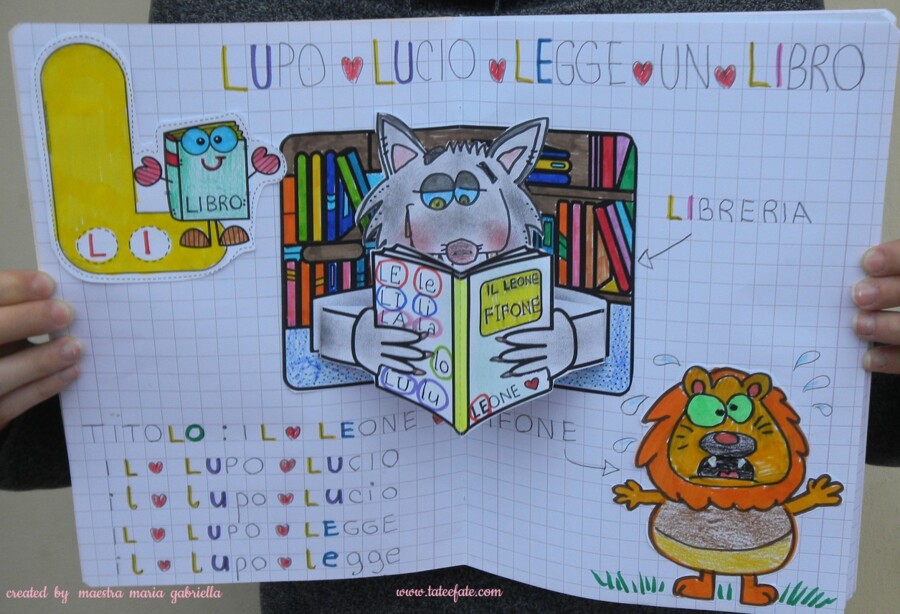 LUPO LUCIO LEGGE UN LIBRO
L
LIBRO:
L I
LIBRERIA
LE le
LI li
LA la
lo
LU lu
IL LEONE
FIFONE
LEONE
TITOLO: IL LEONE FIFONE
IL LUPO LUCIO
il lupo Lucio
IL LUPO LEGGE
il lupo legge
created by maestra maria gabriella
www.tateefate.com